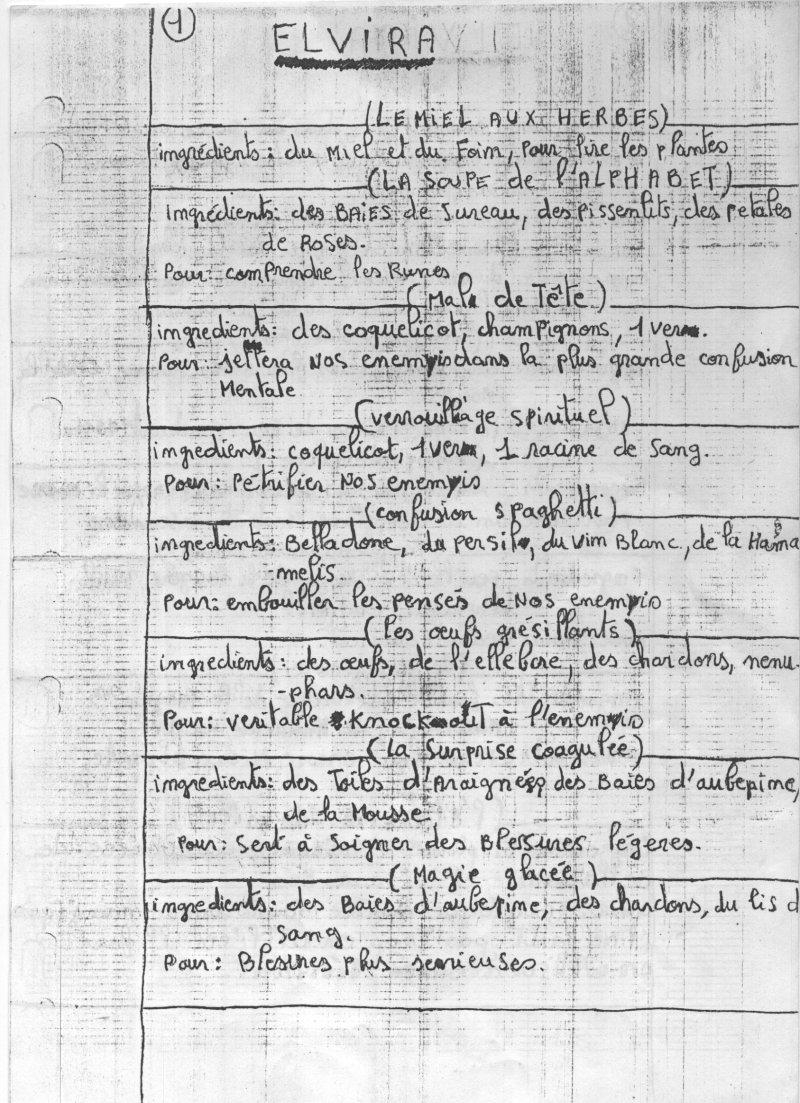 1
ELVIRA
(LE MIEL AUX HERBES)
ingrédients: du Miel et du Foin, Pour lire les plantes
(LA SOUPE de l'ALPHABET)
Ingrédients: des BAIES de Sureau, des pissenlits, des petales
de Roses.
Pour: comprendre les Runes
(Mal de Tête)
ingredients: des coquelicot, champignons, 1 ver.
Pour: jettera Nos enemyis dans la plus grande confusion
Mentale
(verrouillage spirituel)
ingredients: coquelicot, 1 ver, 1 racine de Sang.
Pour: Petrifier Nos enemyis
(confusion spaghetti)
ingredients: Belladone, du persil, du vin Blanc, de la Hama
-melis
Pour: embouiller les pensés de Nos enemyis
(les œufs grésillants)
ingredients: des œufs, de l'ellébore, des chardons, nenu-
-phars.
Pour: veritable Knock-out à l'enemyis
(la Surprise coagulée)
ingredients: des Toiles d'Araignées, des Baies d'aubepine,
de la Mousse
Pour: Sert à Soigner des Blessures légeres.
(Magie glacée)
ingredients: des Baies d'aubepine, des chardons, du lis d
Sang.
Pour: Blessures plus serieuses.